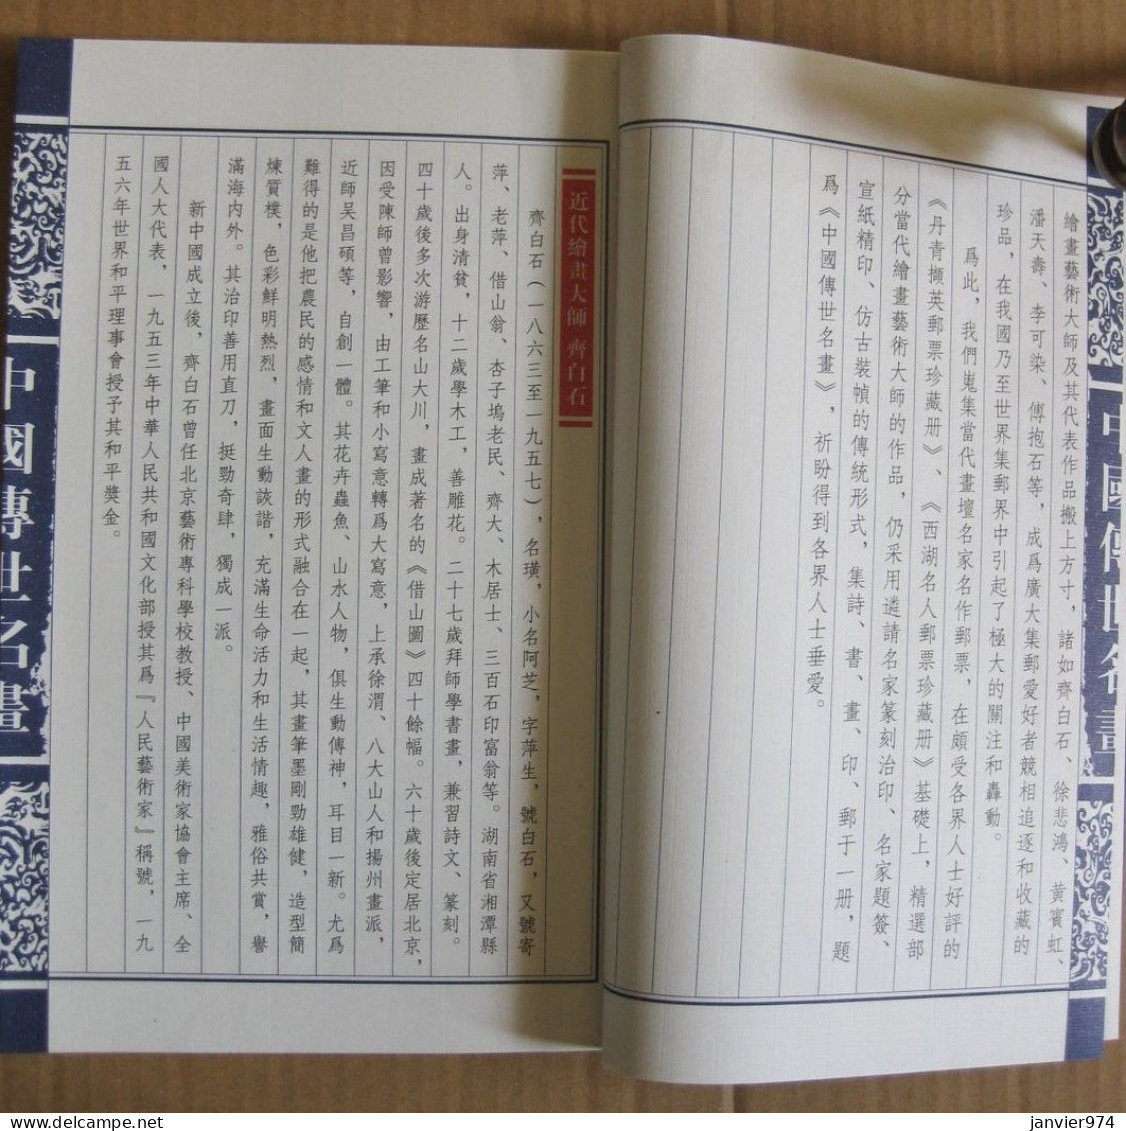 中國傳世名畫
繪畫藝術大師及其代表作品搬上方寸，諸如齊白石、徐悲鴻、黃賓虹、
潘天壽、李可染、傅抱石等，成爲廣大集郵愛好者競相追逐和收藏的
珍品，在我國乃至世界集郵界中引起了極大的關注和轟動。
爲此，我們蒐集當代畫壇名家名作郵票，在頗受各界人士好評的
《丹青擷英郵票珍藏册》、《西湖名人郵票珍藏册》基礎上，精選部
分當代繪畫藝術大師的作品，仍采用遴請名家篆刻治印、名家題簽、
宣紙精印、仿古裝幀的傳統形式，集詩、書、畫、印、郵于一册，題
爲《中國傳世名畫》，祈盼得到各界人士垂愛。
近代繪畫大師 齊白石
齊白石（一八六三至一九五七），名璜，小名阿芝，字萍生，號白石，又號寄
萍、老萍、借山翁、杏子塢老民、齊大、木居士、三百石印富翁等。湖南省湘潭縣
人。出身清貧，十二歲學木工，善雕花。二十七歲拜師學書畫，兼習詩文、篆刻。
四十歲後多次游歷名山大川，畫成著名的《借山圖》四十餘幅。六十歲後定居北京，
因受陳師曾影響，由工筆和小寫意轉爲大寫意，上承徐渭、八大山人和揚州畫派，
近師吴昌碩等，自創一體。其花卉蟲魚、山水人物，俱生動傳神，耳目一新。尤爲
難得的是他把農民的感情和文人畫的形式融合在一起，其畫筆墨剛勁雄健，造型簡
煉質樸，色彩鮮明熱烈，畫面生動詼諧，充滿生命活力和生活情趣，雅俗共賞，譽
滿海内外。其治印善用直刀，挺勁奇肆，獨成一派。
新中國成立後，齊白石曾任北京藝術專科學校教授、中國美術家協會主席、全
國人大代表，一九五三年中華人民共和國文化部授其爲『人民藝術家』稱號，一九
五六年世界和平理事會授予其和平獎金。
中國傳世名畫
janvier974